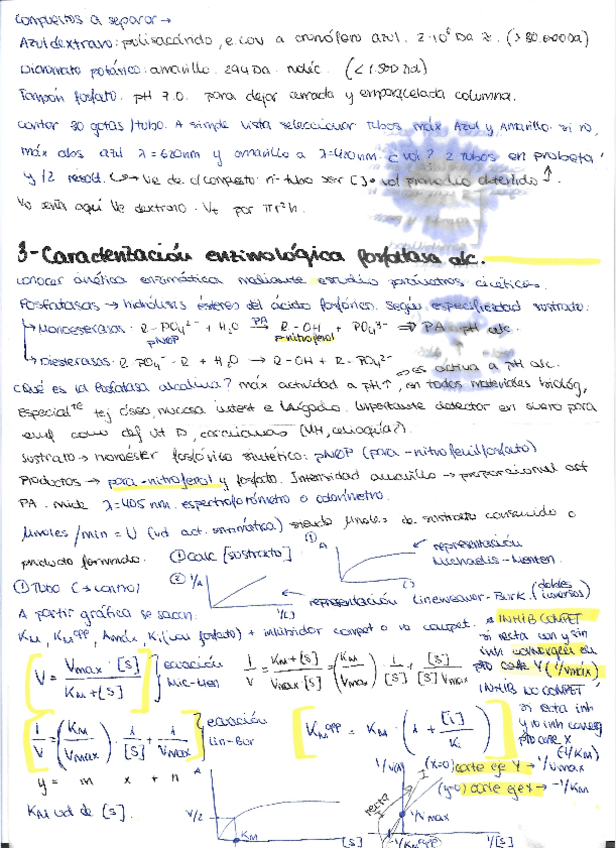 Compuestos a separar →
Azul dextrano: polisacárido, e. cov a cromóforo azul. 2·10⁶ Da
Dicromato potásico: amarillo. 294 Da. (<1.500 Da)
Tampón fosfato. pH 7.0. para dejar cerrada y empaquetada columna.
Contar 30 gotas/tubo. A simple vista seleccionar tubos máx Azul y Amarillo. si no,
máx abs azul λ=620nm y amarillo a λ=420nm. ¿vol? 2 tubos en probeta
y /2 result. Ve de c/compuesto: nº tubo ser [ ]· vol promedio obtenido
Vo será aquí Ve dextrano. Vt por πr²h.
3-Caracterización enzimológica fosfatasa alc.
Conocer cinética enzimática mediante estudio parámetros cinéticos.
Fosfatasas → hidrólisis ésteres del ácido fosfórico. Según especificidad sustrato:
→ Monoesterasas. R-PO₄²⁻ + H₂O PA→ R-OH + PO₄³⁻ ⇒ PA pH alc.
pNPP p-nitrofenol
→ Diesterasas. R-PO₄⁻-R + H₂O → R-OH + R-PO₄²⁻
es activa a pH alc.
¿Qué es la fosfatasa alcalina? máx actividad a pH↑, en todos materiales biológ,
especialᵗᵉ tej óseo, mucosa intest e hígado. Importante detectar en suero para
enf como def vit D, carcinomas
Sustrato → monoéster fosfórico sintético: pNPP (para-nitrofenilfosfato)
Productos → para-nitrofenol y fosfato. Intensidad amarillo → proporcional act
PA. mide λ=405 nm. espectrofotómetro o colorímetro.
μmoles/min = U (ud act. enzimática) siendo μmoles de sustrato consumido o
producto formado. ① Calc [sustrato]
① A
[ ]
representación
Michaelis-Menten.
① Tubo C → control
② 1/A
1/[ ]
representación Lineweaver-Burk. (dobles
inversos)
A partir gráfica se sacan:
KM, KM app, Amáx, Ki (con fosfato) → inhibidor compet o no compet.
* INHIB COMPET
si recta con y sin
inh convergen en
pto corte Y (1/Vmax)
INHIB NO COMPET
si recta inh
y no inh converg
pto corte x
(-1/KM)
V = Vmax · [S] / KM + [S] } ecuación
Mic-Men
1/V = KM+[S] / Vmax [S] = (KM/Vmax) · 1/[S] + [S]/[S] Vmax
1/V = (KM/Vmax) · 1/[S] + 1/Vmax } ecuación
Lin-Bur
KM app = KM · (1 + [i]/Ki)
y = m x + n
KM ud de [S].
A
V/2
KM
[S]
1/V
(x=0) corte eje Y → 1/Vmax
(y=0) corte eje x → -1/KM
recta
1/Vmax
-1/KM app
1/[S]